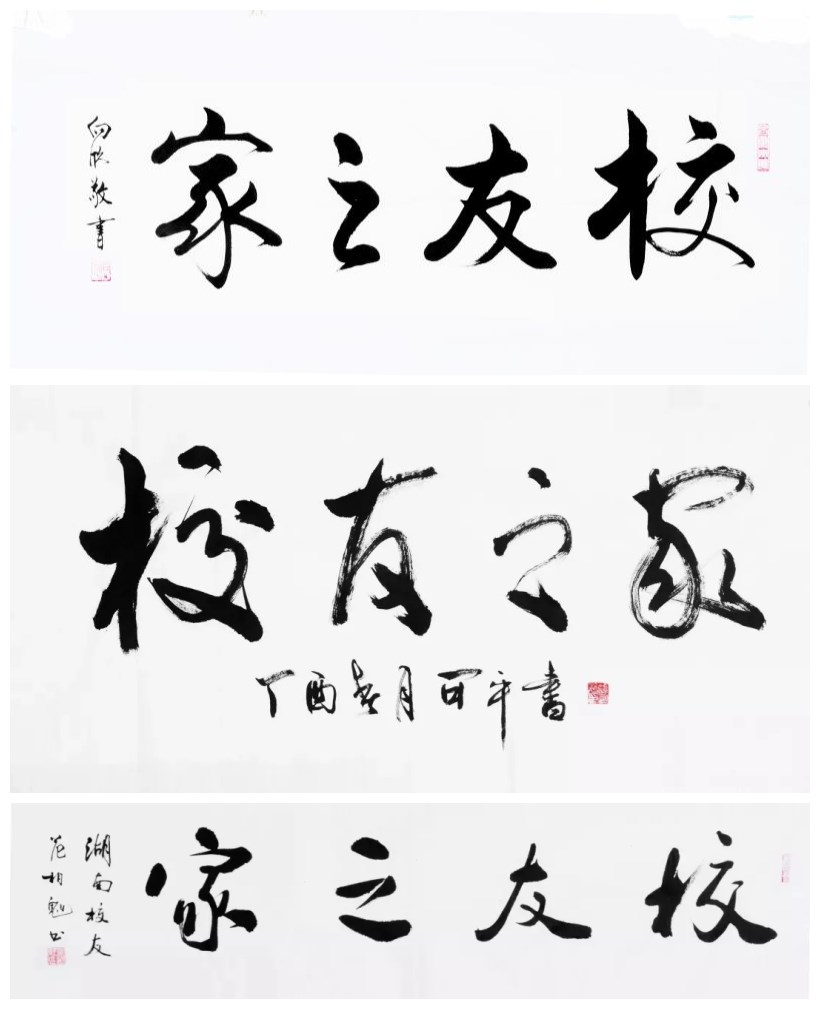 校友之家
向欣敬書
校友之家
丁酉春月可平書
校友之家
湖南校友
范相魁書